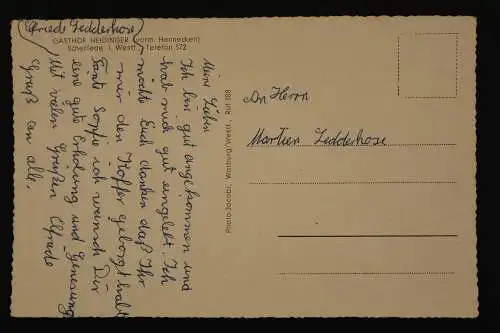 (Elfriede Ledderhose)
GASTHOF HEIDINGER (vorm. Hennecken)
Scherfede i. Westf. / Telefon 572
Meine Lieben
Ich bin gut angekommen und
hab mich gut eingelebt. Ich
möchte Euch danken daß Ihr
mir den Koffer geborgt habt
Tante Sophie ich wünsch Dir
eine gute Erholung und Genesung
Mit vielen Grüßen Elfriede
Gruß an alle.
Photo-Jacobi, Warburg/Westf., Ruf 188
An Herrn
Martien Ledderhose